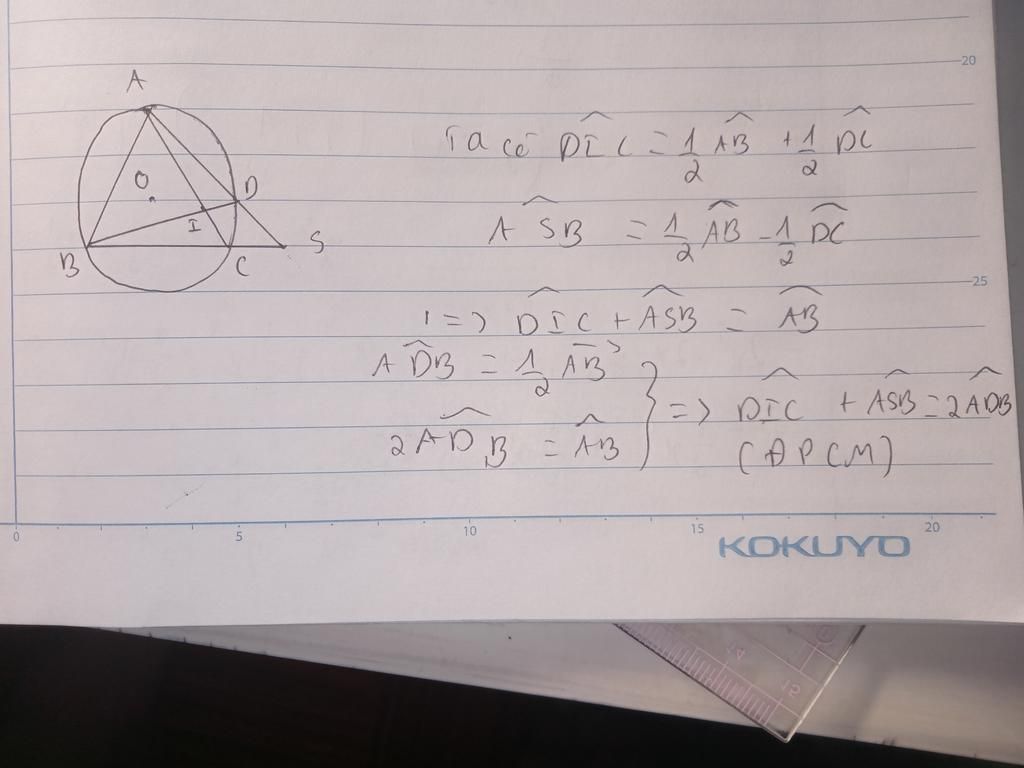 A
O
D
I
B
C
S
Ta có \widehat{DIC} = \frac{1}{2} \widehat{AB} + \frac{1}{2} \widehat{DC}
\widehat{ASB} = \frac{1}{2} \widehat{AB} - \frac{1}{2} \widehat{DC}
=> \widehat{DIC} + \widehat{ASB} = \widehat{AB}
\widehat{ADB} = \frac{1}{2} \widehat{AB}
2\widehat{ADB} = \widehat{AB}
} => \widehat{DIC} + \widehat{ASB} = 2\widehat{ADB}
(ĐPCM)
20
25
0 5 10 15 20
KOKUYO
14
15